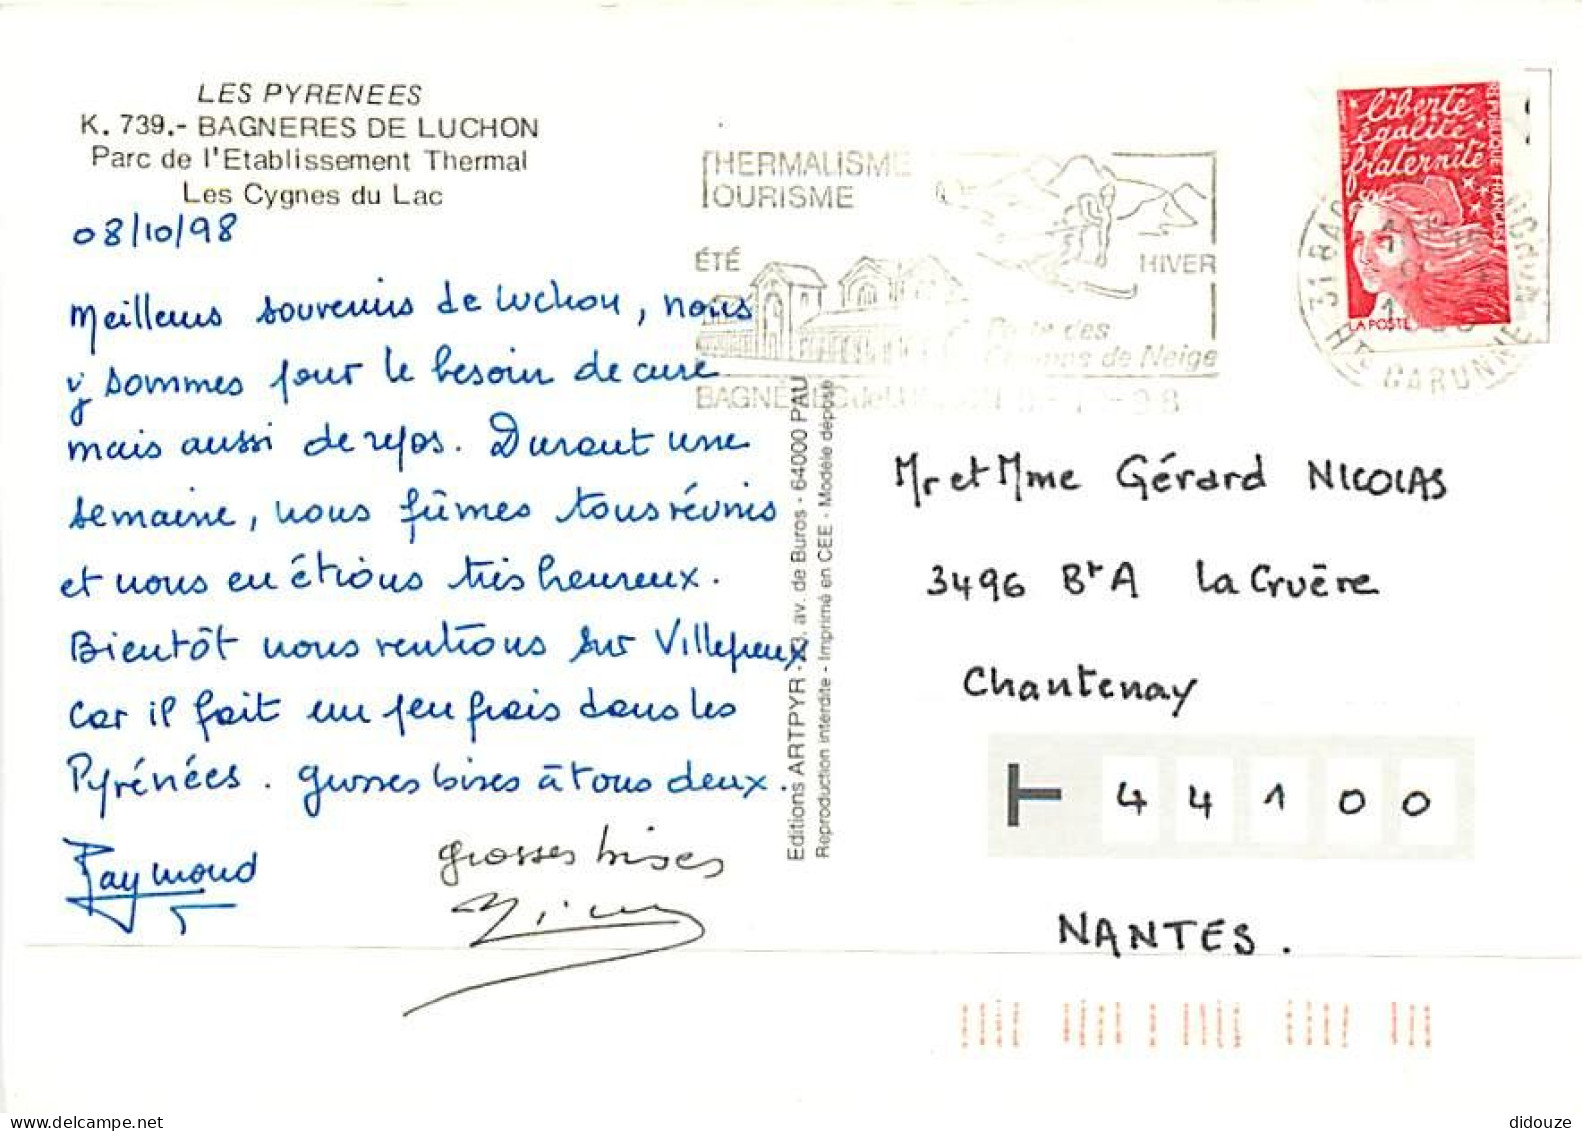 LES PYRENEES
K. 739.- BAGNERES DE LUCHON
Parc de l'Etablissement Thermal
Les Cygnes du Lac
08/10/98
Meilleurs souvenirs de Luchon, nous
y sommes pour le besoin de cure
mais aussi de repos. Durant une
semaine, nous fûmes tous réunis
et nous en étions très heureux.
Bientôt nous rentrions sur Villepreux
car il fait un peu frais dans les
Pyrénées. grosses bises à tous deux.
Raymond
grosses bises
Editions ARTPYR - 23, av. de Buros - 64000 PAU
Reproduction interdite - Imprimé en CEE - Modèle déposé
THERMALISME
TOURISME
ÉTÉ
HIVER
Porte des
de Neige
BAGNÈRES de LUCHON
liberté
égalité
fraternité
REPUBLIQUE FRANÇAISE
LA POSTE
31 BAGN
LUCHON
HTE GARONNE
Mr et Mme Gérard NICOLAS
3496 Bt A La Cruère
Chantenay
44100
NANTES.
didouze